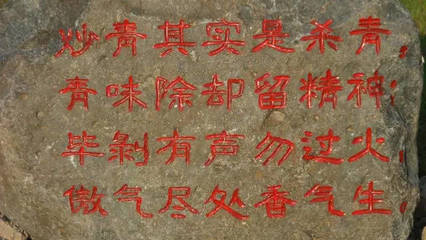 炒青其实是杀青；
青味除却留精神；
毕剥有声勿过火；
傲气尽处香气生；